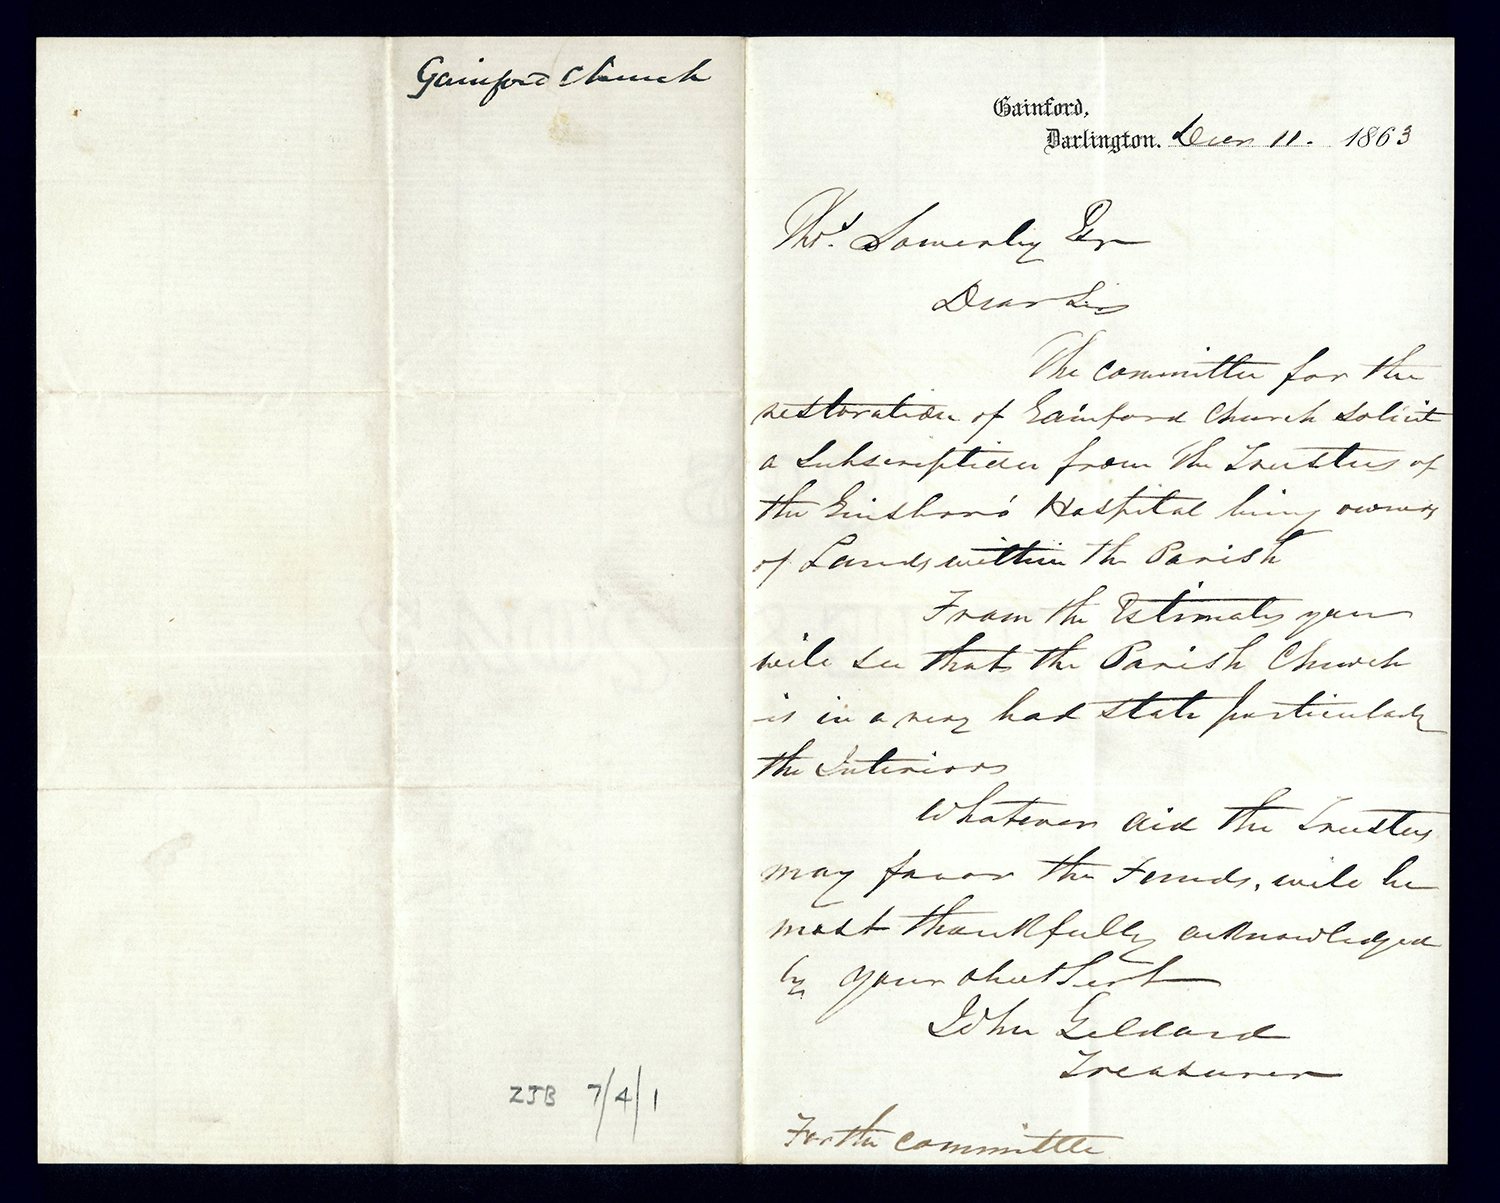 Gainford Church
ZJB 7/4/1
Gainford,
Darlington. Decr 11. 1863
Thos. Sowerby Esqr
Dear Sir
The Committee for the
restoration of Gainford Church solicit
a Subscription from the Trustees of
the Guisbro' Hospital being owners
of Lands within the Parish
From the Estimates you
will see that the Parish Church
is in a very bad state particularly
the Interior
Whatever aid the Trustees
may favor the Funds, will be
most thankfully acknowledged
by your obedt Servt
John Geldard
Treasurer
For the Committee